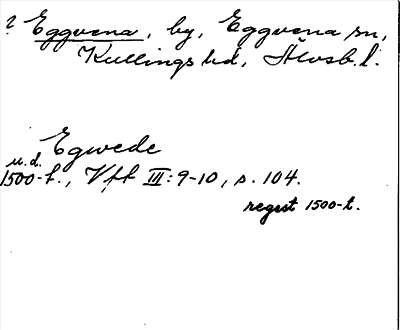 ? Eggvena, by, Eggvena sn,
Kullings hd, Älvsb. l.
Egwede
u. d.
1500-t., Vft III: 9-10, s. 104.
regest 1500-t.